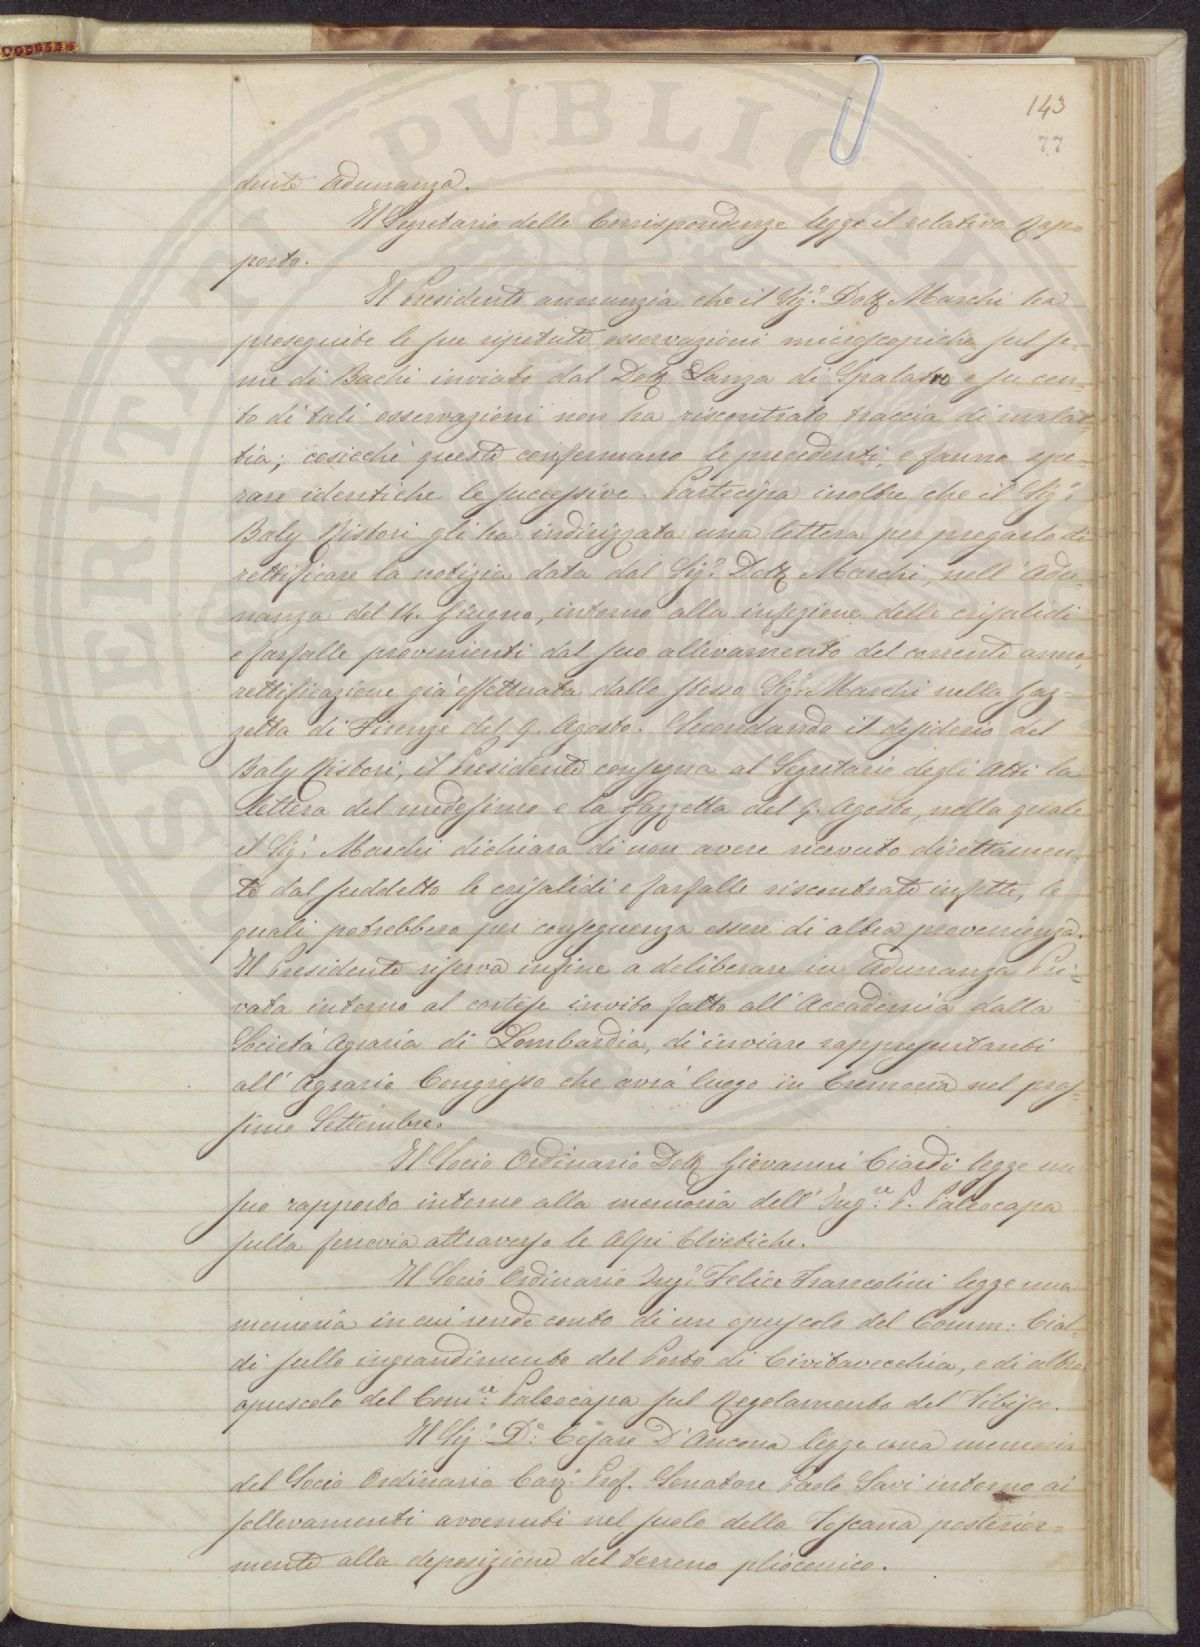 143
77
dente Adunanza.
Il Segretario delle Corrispondenze legge il relativo Rap=
porto.
Il Presidente annunzia che il Sig.r Dott. Marchi ha
proseguite le sue ripetute osservazioni microscopiche sul se-
me di Bachi inviato dal Dott. Lanza di Spalatro e su cen-
to di tali osservazioni non ha riscontrato traccia di malat-
tia; cosicchè queste confermano le precedenti, e fanno spe-
rare identiche le successive. Partecipa inoltre che il Sig.r
Balÿ Ristori gli ha indirizzata una lettera per pregarlo di
rettificare la notizia data dal Sig.r Dott. Marchi, nell'Adu-
nanza del 14. Giugno, intorno alla infezione delle crisalidi
e farfalle provenienti dal suo allevamento del corrente anno,
rettificazione già effettuata dallo stesso Sig.r Marchi nella Gaz-
zetta di Firenze del 9. Agosto. Secondando il desiderio del
Balÿ Ristori, il Presidente consegna al Segretario degli Atti la
lettera del medesimo e la Gazzetta del 9. Agosto, nella quale
il Sig.r Marchi dichiara di non avere ricevuto direttamen-
te dal suddetto le crisalidi e farfalle riscontrate infette, le
quali potrebbero per conseguenza essere di altra provenienza.
Il Presidente riserva infine a deliberare in Adunanza Pri-
vata intorno al cortese invito fatto all'Accademia dalla
Società Agraria di Lombardia, di inviare rappresentanti
all'Agrario Congresso che avrà luogo in Cremona nel pros-
simo Settembre.
Il Socio Ordinario Dott. Giovanni Ciardi legge un
suo rapporto intorno alla memoria dell'Ing.re P. Paleocapa
sulla ferrovia attraverso le Alpi Elvetiche.
Il Socio Ordinario Ing.r Felice Francolini legge una
memoria in cui rende conto di un opuscolo del Comm: Cial-
di sullo ingrandimento del Porto di Civitavecchia, e di altro
opuscolo del Com.re Paleocapa sul Regolamento del Tibisco.
Il Sig.r D.r Cesare D'Ancona legge una memoria
del Socio Ordinario Cav. Prof. Senatore Paolo Savi intorno ai
sollevamenti avvenuti nel suolo della Toscana posterior=
mente alla deposizione del terreno pliocenico.